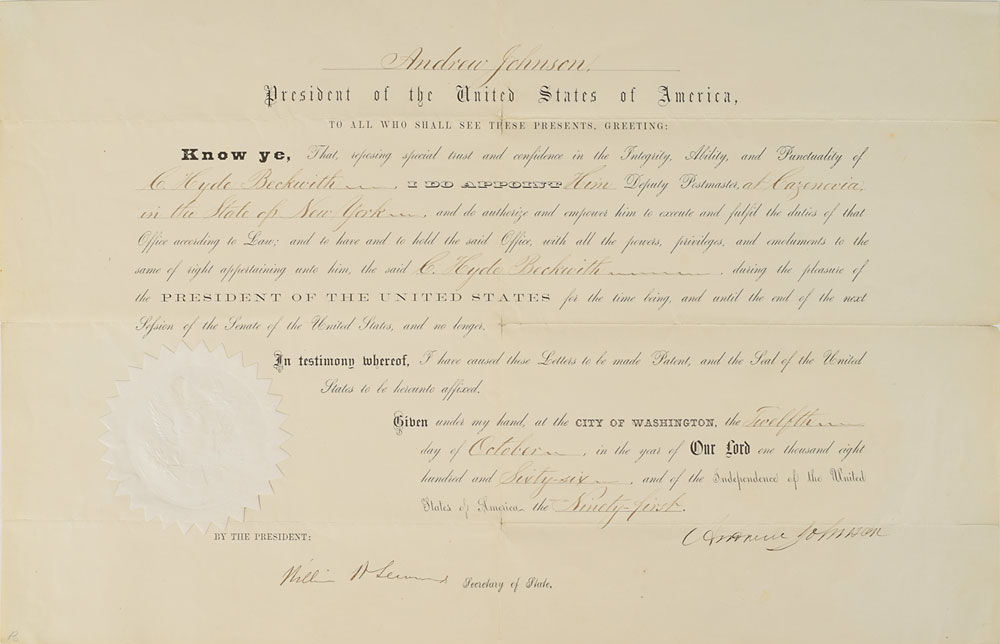 Andrew Johnson,
President of the United States of America,
TO ALL WHO SHALL SEE THESE PRESENTS, GREETING:
Know ye, That, reposing special trust and confidence in the Integrity, Ability, and Punctuality of
C. Hyde Beckwith, I DO APPOINT Him Deputy Postmaster, at Cazenovia,
in the State of New York, and do authorize and empower him to execute and fulfil the duties of that
Office according to Law; and to have and to hold the said Office, with all the powers, privileges, and emoluments to the
same of right appertaining unto him, the said C. Hyde Beckwith, during the pleasure of
the PRESIDENT OF THE UNITED STATES for the time being, and until the end of the next
Seſsion of the Senate of the United States, and no longer.
In testimony whereof, I have caused these Letters to be made Patent, and the Seal of the United
States to be hereunto affixed.
Given under my hand, at the CITY OF WASHINGTON, the Twelfth
day of October, in the year of Our Lord one thousand eight
hundred and Sixty-six, and of the Independence of the United
States of America the Ninety-first.
Andrew Johnson
BY THE PRESIDENT:
William H Seward Secretary of State.